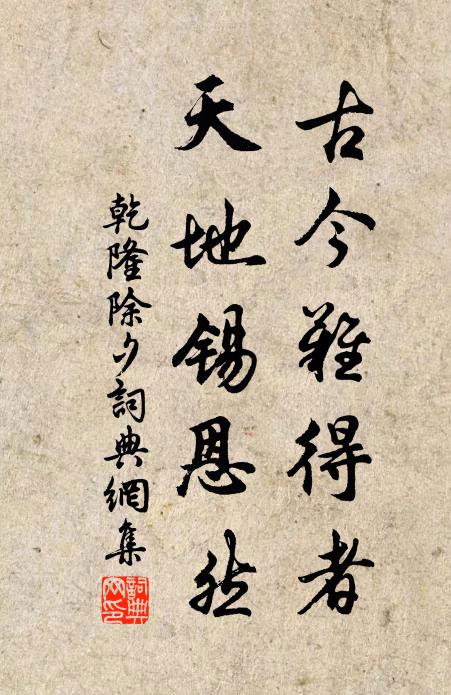 古今難得者
天地錫恩然
乾隆除夕詞典網集
詞典網印